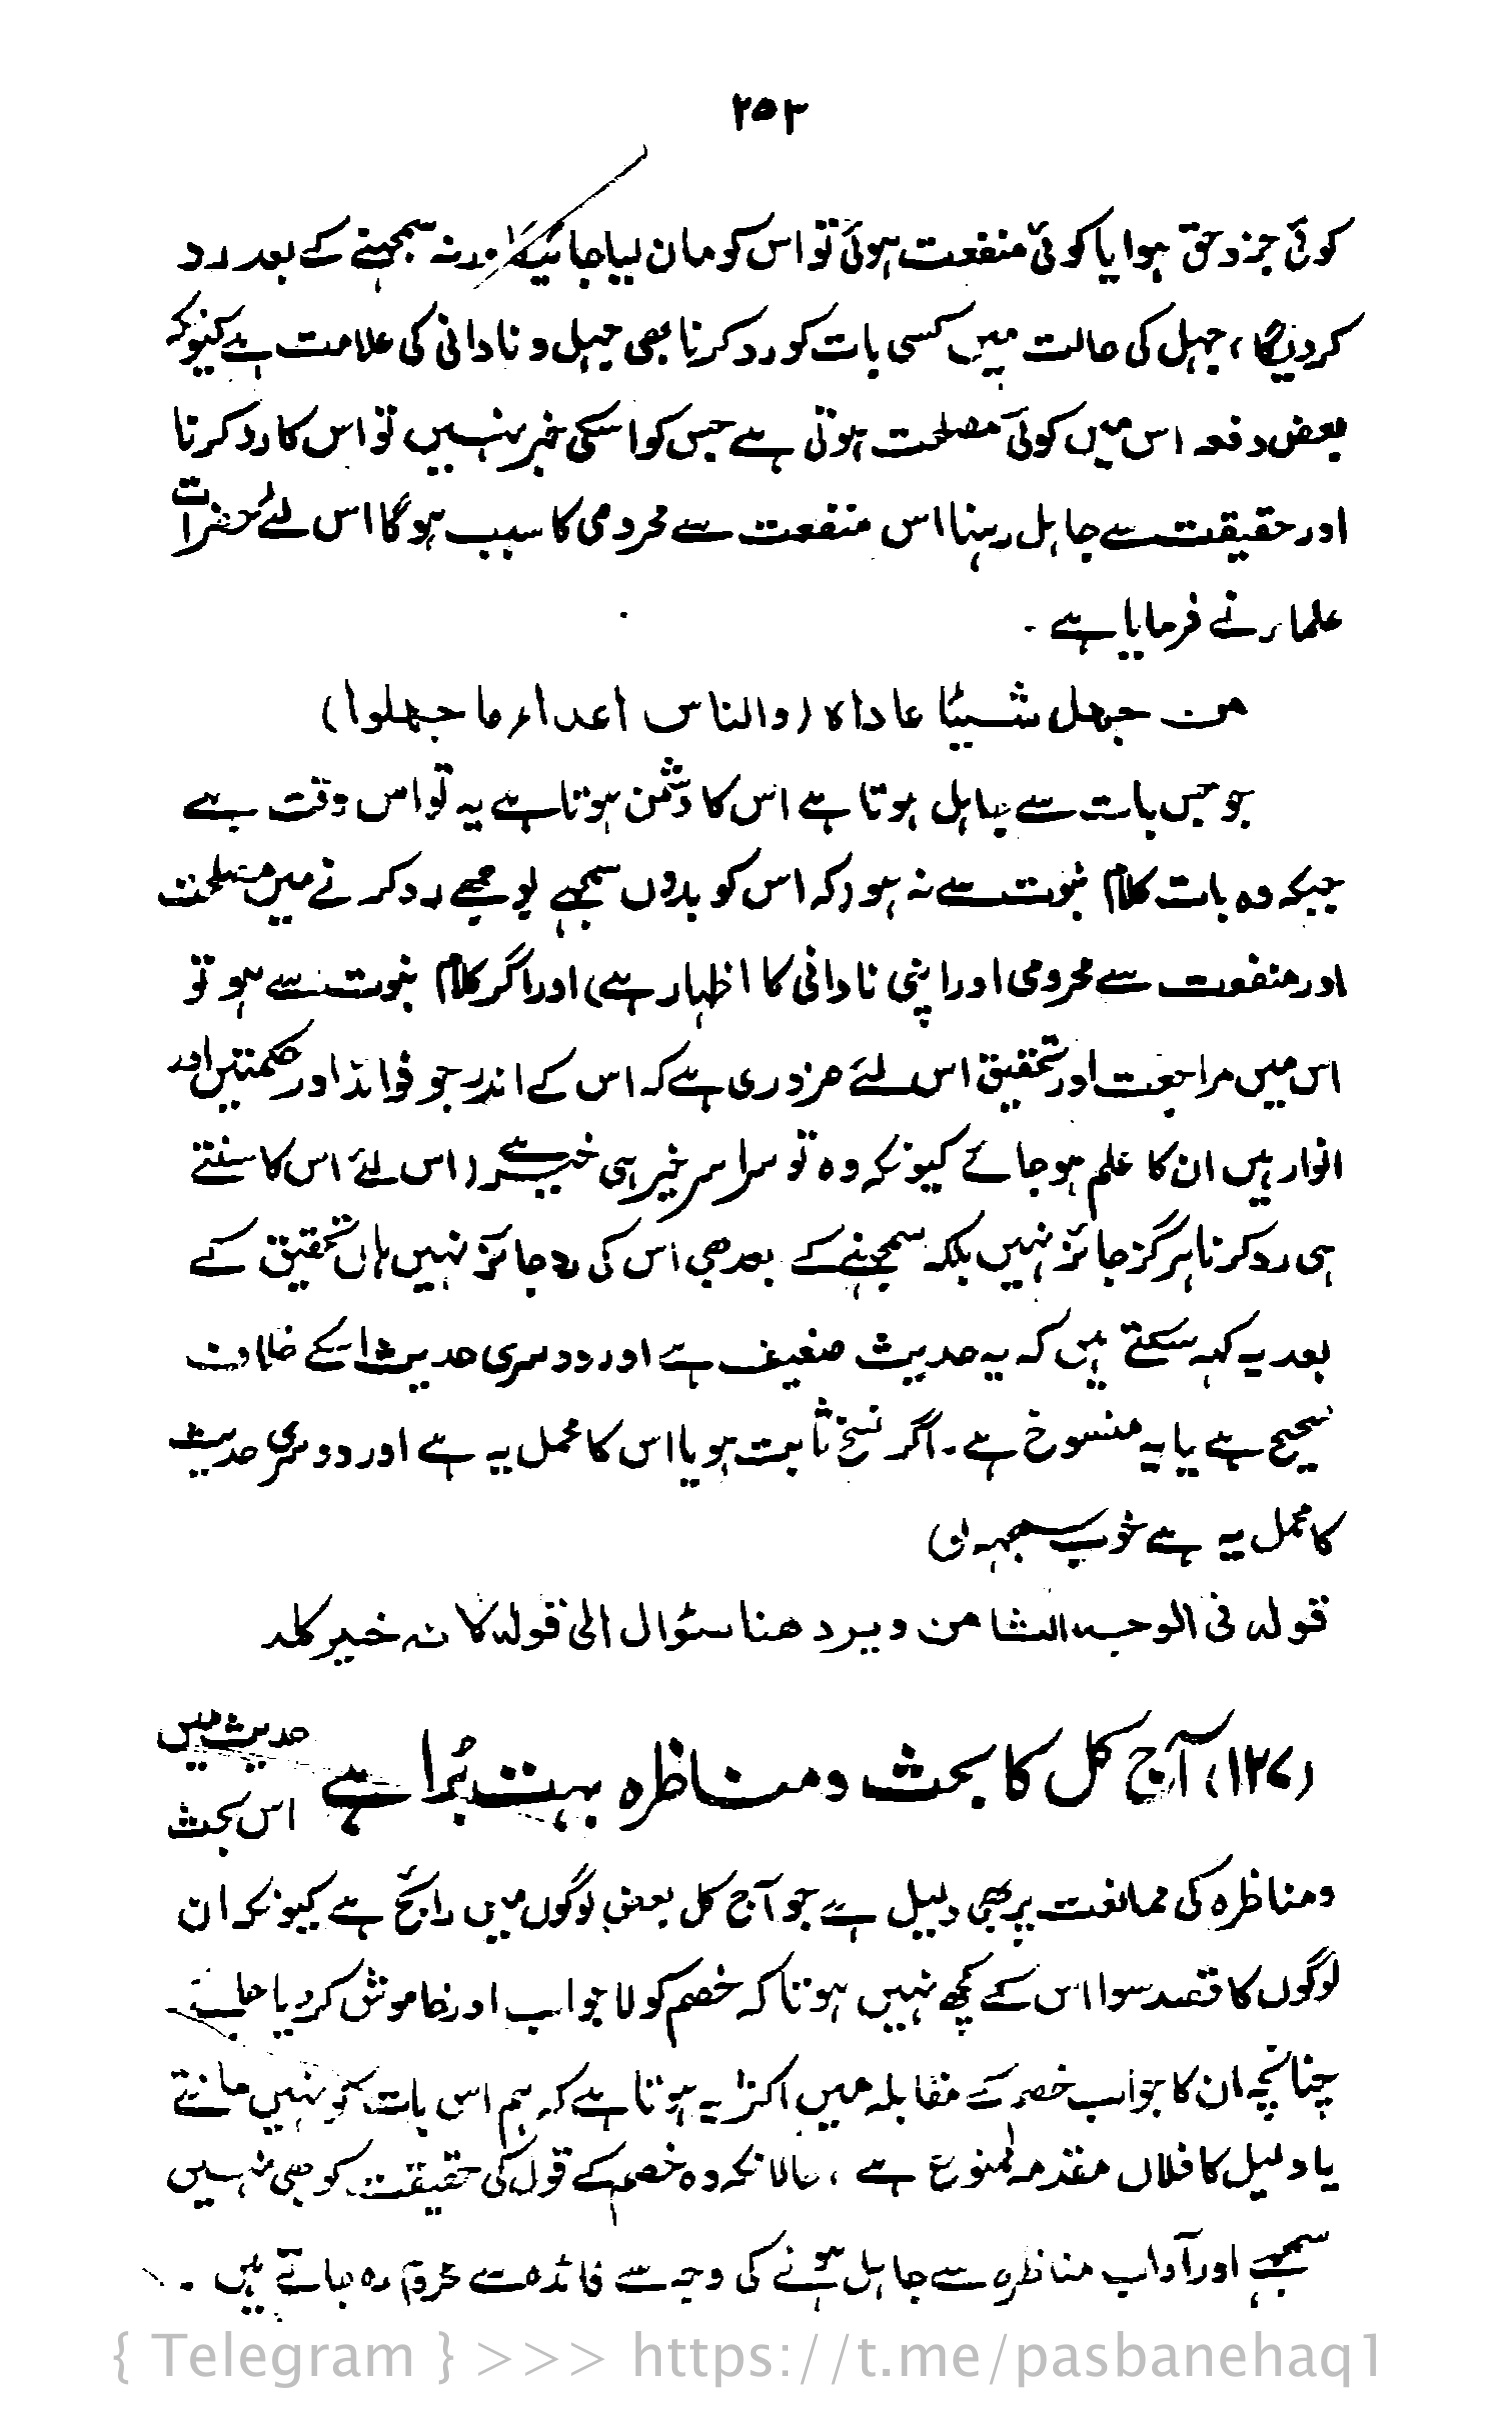 ۲۵۳
کوئی جزوحق ہوا یا کوئی منفعت ہوئی تو اس کو مان لیا جائیگا ورنہ سمجھنے کے بعد رد
کردینگا، جہل کی حالت میں کسی بات کو رد کرنا بھی جہل و نادانی کی علامت ہے کیونکہ
بعض دفعہ اس میں کوئی مصلحت ہوتی ہے جس کو اسکی خبر نہیں تو اس کا رد کرنا
اور حقیقت سے جاہل رہنا اس منفعت سے محرومی کا سبب ہوگا اس لئے حضرات
علماء نے فرمایا ہے ۔
من جهل شيئا عاداه (والناس اعداء ما جهلوا)
جو جس بات سے جاہل ہوتا ہے اس کا دشمن ہوتا ہے یہ تو اس وقت ہے
جبکہ وہ بات کلام نبوت سے نہ ہو (کہ اس کو بدوں سمجھے بوجھے رد کرنے میں مصلحت
اور منفعت سے محرومی اور اپنی نادانی کا اظہار ہے) اور اگر کلام نبوت سے ہو تو
اس میں مراجعت اور تحقیق اس لئے ضروری ہے کہ اس کے اندر جو فوائد اور حکمتیں اور
انوار ہیں ان کا علم ہو جائے کیونکہ وہ تو سراسر خیر ہی خیر ہے (اس لئے اس کا سنتے
ہی رد کرنا ہرگز جائز نہیں بلکہ سمجھنے کے بعد بھی اس کی رد جائز نہیں ہاں تحقیق کے
بعد یہ کہہ سکتے ہیں کہ یہ حدیث ضعیف ہے اور دوسری حدیث اسکے خلاف
صحیح ہے یا یہ منسوخ ہے ۔ اگر نسخ ثابت ہو یا اس کا محمل یہ ہے اور دوسری حدیث
کا محمل یہ ہے خوب سمجھ لو)
قوله فی الوجه الثامن ویرد هنا سؤال الی قوله لانه خیر کله
(۱۲۷) آج کل کا بحث و مناظرہ بہت بُرا ہے حدیث میں
اس بحث
ومناظرہ کی ممانعت پر بھی دلیل ہے جو آج کل بعض لوگوں میں رائج ہے کیونکہ ان
لوگوں کا قصد سوا اس کے کچھ نہیں ہوتا کہ خصم کو لاجواب اور خاموش کر دیا جائے
چنانچہ ان کا جواب خصم کے مقابلہ میں اکثر یہ ہوتا ہے کہ ہم اس بات کو نہیں مانتے
یا دلیل کا فلاں مقدمہ ممنوع ہے ، حالانکہ وہ خصم کے قول کی حقیقت کو بھی نہیں
سمجھے اور آداب مناظرہ سے جاہل ہونے کی وجہ سے فائدہ سے محروم رہ جاتے ہیں ۔
{ Telegram } >>> https://t.me/pasbanehaq1